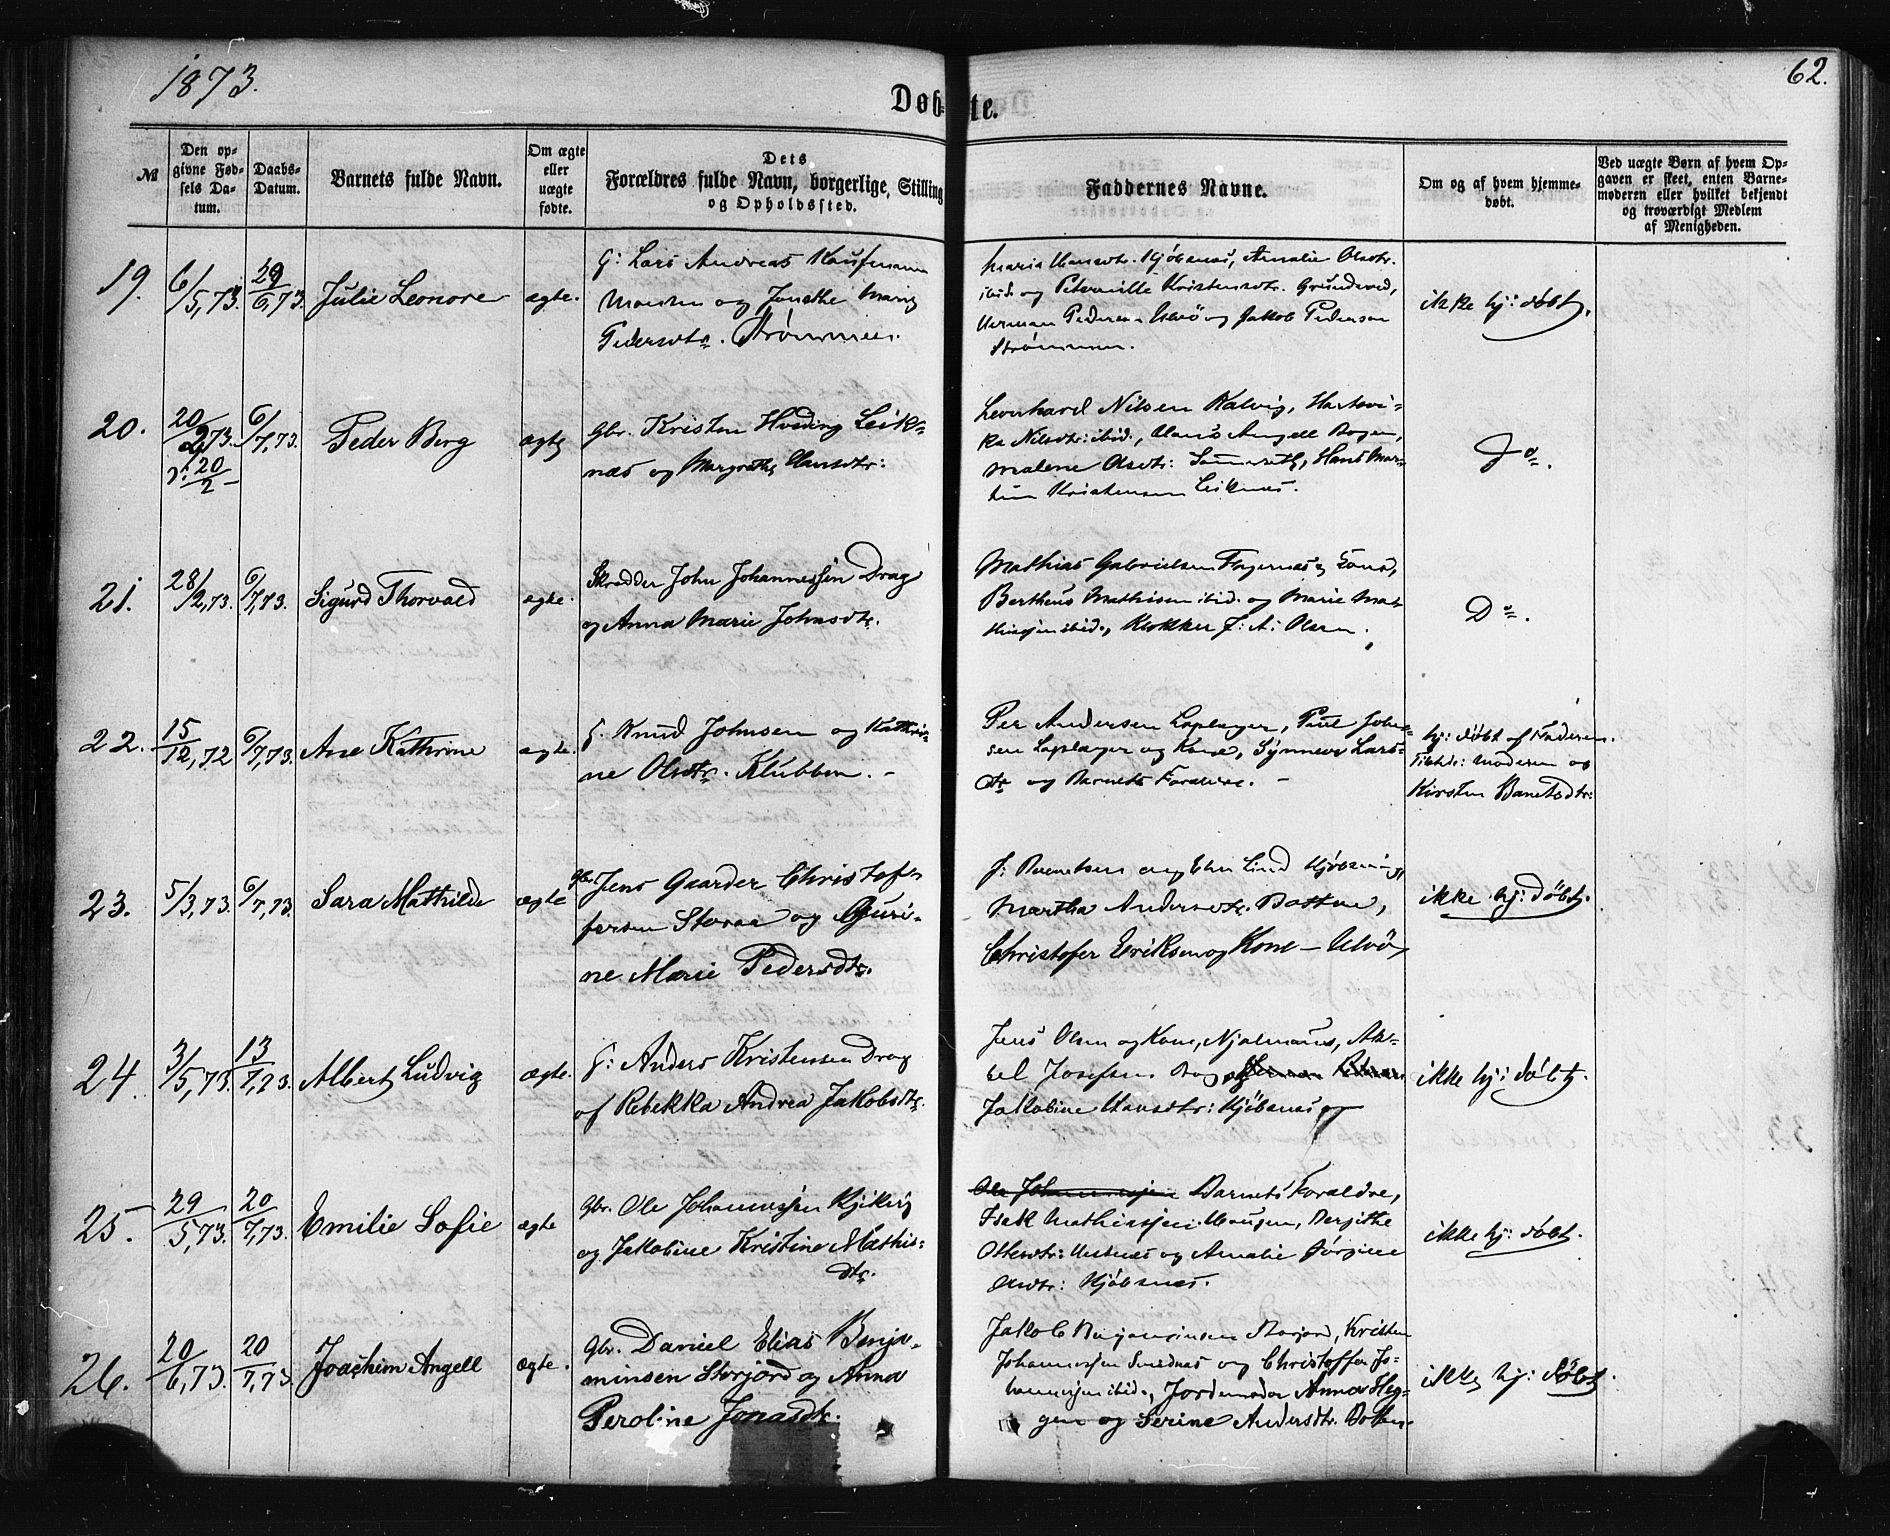 1873.
62.
Døb-te.
№
Den op-
givne Fød-
sels Da-
tum.
Daabs-
Datum.
Barnets fulde Navn.
Om ægte
eller
uægte
fødte.
Dets
Forældres fulde Navn, borgerlige, Stilling
og Opholdssted.
Faddernes Navne.
Om og af hvem hjemme-
døbt.
Ved uægte Børn af hvem Op-
gaven er skeet, enten Barne-
moderen eller hvilket bekjendt
og troværdigt Medlem
af Menigheden.
19. 6/5,73. 29/6,73. Julie Leonore ægte.
G: Lars Andreas Kaufmann
og Marie
Pedersdtr. Strømmen.
Maria Hansdtr. Kjøbsnæs, Amalie Olsdtr.
ibid. og Kristensdtr.
Herman Pedersen Ulvö og Jakob Pedersen
Strømmen.
ikke hj: døbt.
20. 20/2,73. 6/7,73. Peder Berg ægte
20/2
Gbr. Kristen Hveding Leik-
næs og Margrethe Hansdtr:
Leonhard Nilsen Kalvig,
Nilsdtr: ibid., Angell Bogen,
Malene Olsdtr: Hans Mar-
Kristensen Leiknæs.
Do.
21. 28/2,73. 6/7,73. Sigurd Thorvald ægte.
Skrædder John Johannessen Drag
og Anna Marie Johnsdtr.
Mathias Gabrielsen Fagernæs og Kone,
Bertheus Mathisen ibid. og Marie Mat-
ibid., Klokker J: A: Olsen.
Do.
22. 15/12,72 6/7,73. Ane Kathrine ægte.
G. Knud Johnsen og Kathri-
ne Olsdtr. Klubben. -
Per Andersen Laplæger, Paul John-
sen Laplæger og Kone, Synneve Lars-
dtr og Barnets Forældre. -
hj: døbt af Faderen.
Moderen og
Kirsten
23. 5/3,73. 6/7,73. Sara Mathilde ægte
Gbr. Jens Gaarder Christof-
fersen Storaa og Guri-
ne Marie Pedersdtr.
J: og Lind
Martha Andersdtr. Botnen,
Christofer Eriksen og Kone - Ulvö,
ikke hj: døbt.
24. 3/5,73. 13/7,73. Albert Ludvig ægte.
G: Anders Kristensen Drag
af Rebekka Andrea Jakobsdtr.
Jens Olsen og Kone, Ak-
sel Josefsen Drag
Jakobine Hansdtr: Kjöbsnæs og
ikke hj: döbt.
25. 29/5,73. 20/7,73. Emilie Sofie ægte
Gbr. Ole Johannessen
og Jakobine Kristine Mathis-
dtr.
Ole Johannessen Barnets Forældre,
Isak Mathiassen Haugen, Bergithe
og Amalie Jørgine
Olsdtr: Kjöbsnæs.
ikke hj: döbt.
26. 20/6,73. 20/7,73. Joachim Angell ægte.
Gbr. Daniel Elias Benja-
minsen Storjord og Anna
Peroline Jonasdtr.
Jakob Benjaminsen Storjord, Kristen
Johannessen og Christoffer Jo-
hannessen ibid., Jordemoder Anna Heg-
gen og Serine Andersdtr. Botten.
ikke hj: döbt.